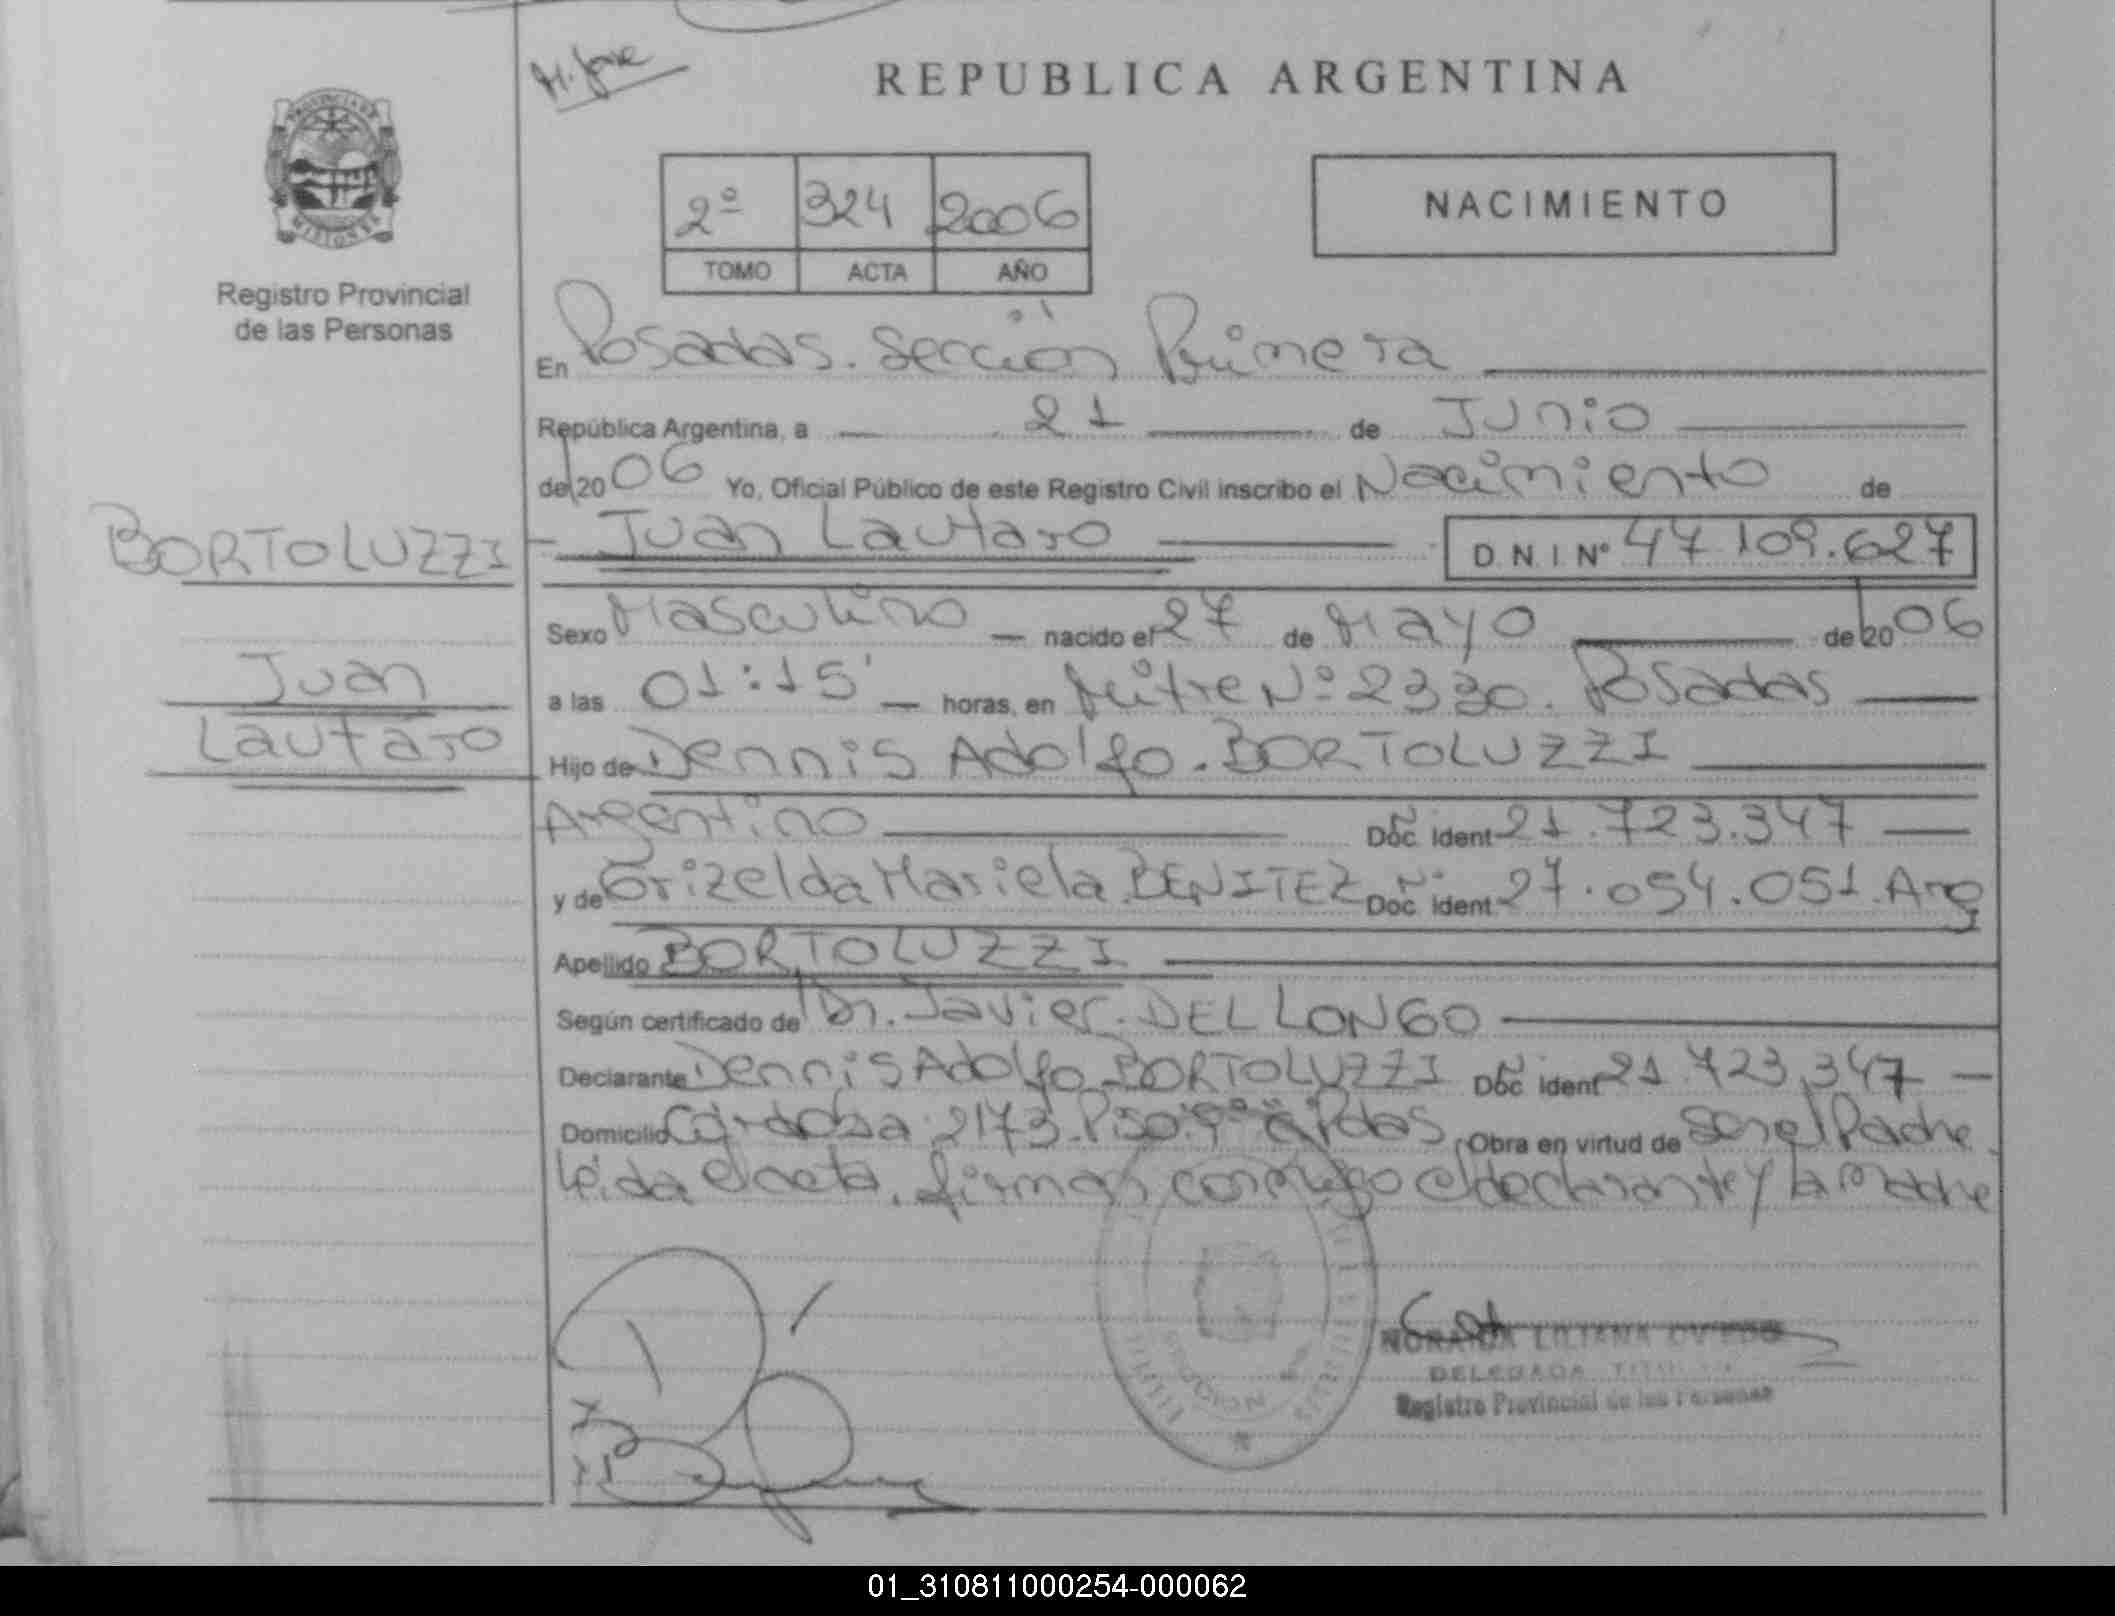 M. Jose
REPUBLICA ARGENTINA
PROVINCIA DE
MISIONES
Registro Provincial
de las Personas
2º 324 2006
TOMO ACTA AÑO
NACIMIENTO
En Posadas. Sección Primera
República Argentina, a 21 de Junio
de 2006 Yo, Oficial Público de este Registro Civil inscribo el Nacimiento de
BORTOLUZZI
Juan
Lautaro
Juan Lautaro D.N.I. Nº 47.109.627
Sexo Masculino nacido el 27 de Mayo de 2006
a las 01:15' horas, en Mitre Nº 2330. Posadas
Hijo de Dennis Adolfo. BORTOLUZZI
Argentino Doc. Ident 21.723.347
y de Grizelda Mariela BENITEZ Doc. Ident. 27.054.051. Arg
Apellido BORTOLUZZI
Según certificado de Dr. Javier. DEL LONGO
Declarante Dennis Adolfo BORTOLUZZI Doc Ident 21.723.347
Domicilio Córdoba 2173. Piso Pdas. Obra en virtud de ser el Padre
leida el acta, firman conmigo el declarante y la madre
LILIANA OVIEDO
DELEGADA TITULAR
Registro Provincial de las Personas
01_310811000254-000062